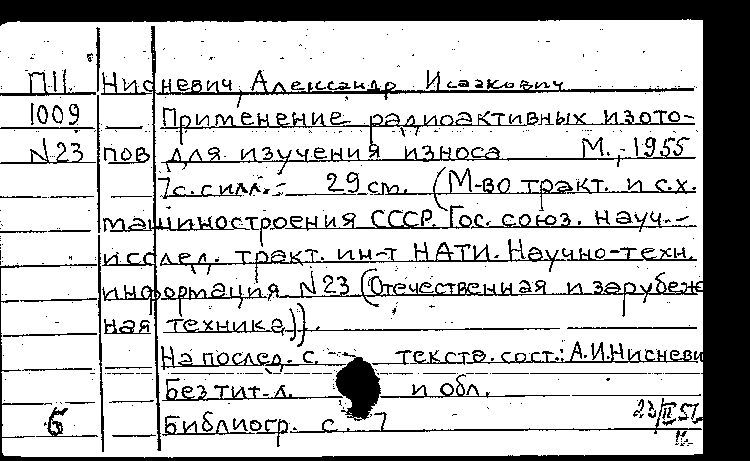 П.11. Нисневич, Александр Исаакович
1009 Применение радиоактивных изото-
N23 пов для изучения износа М., 1955
7с. с илл.; 29 cm. (М-во тракт. и с.х.
машиностроения СССР. Гос. союз. науч.-
исслед. тракт. ин-т НАТИ. Научно-техн.
информация N23 (Отечественная и зарубеж
ная техника)).
На послед. с. текста. сост.: А.И.Нисневи
Без тит. л. и обл.
б Библиогр. с. 7